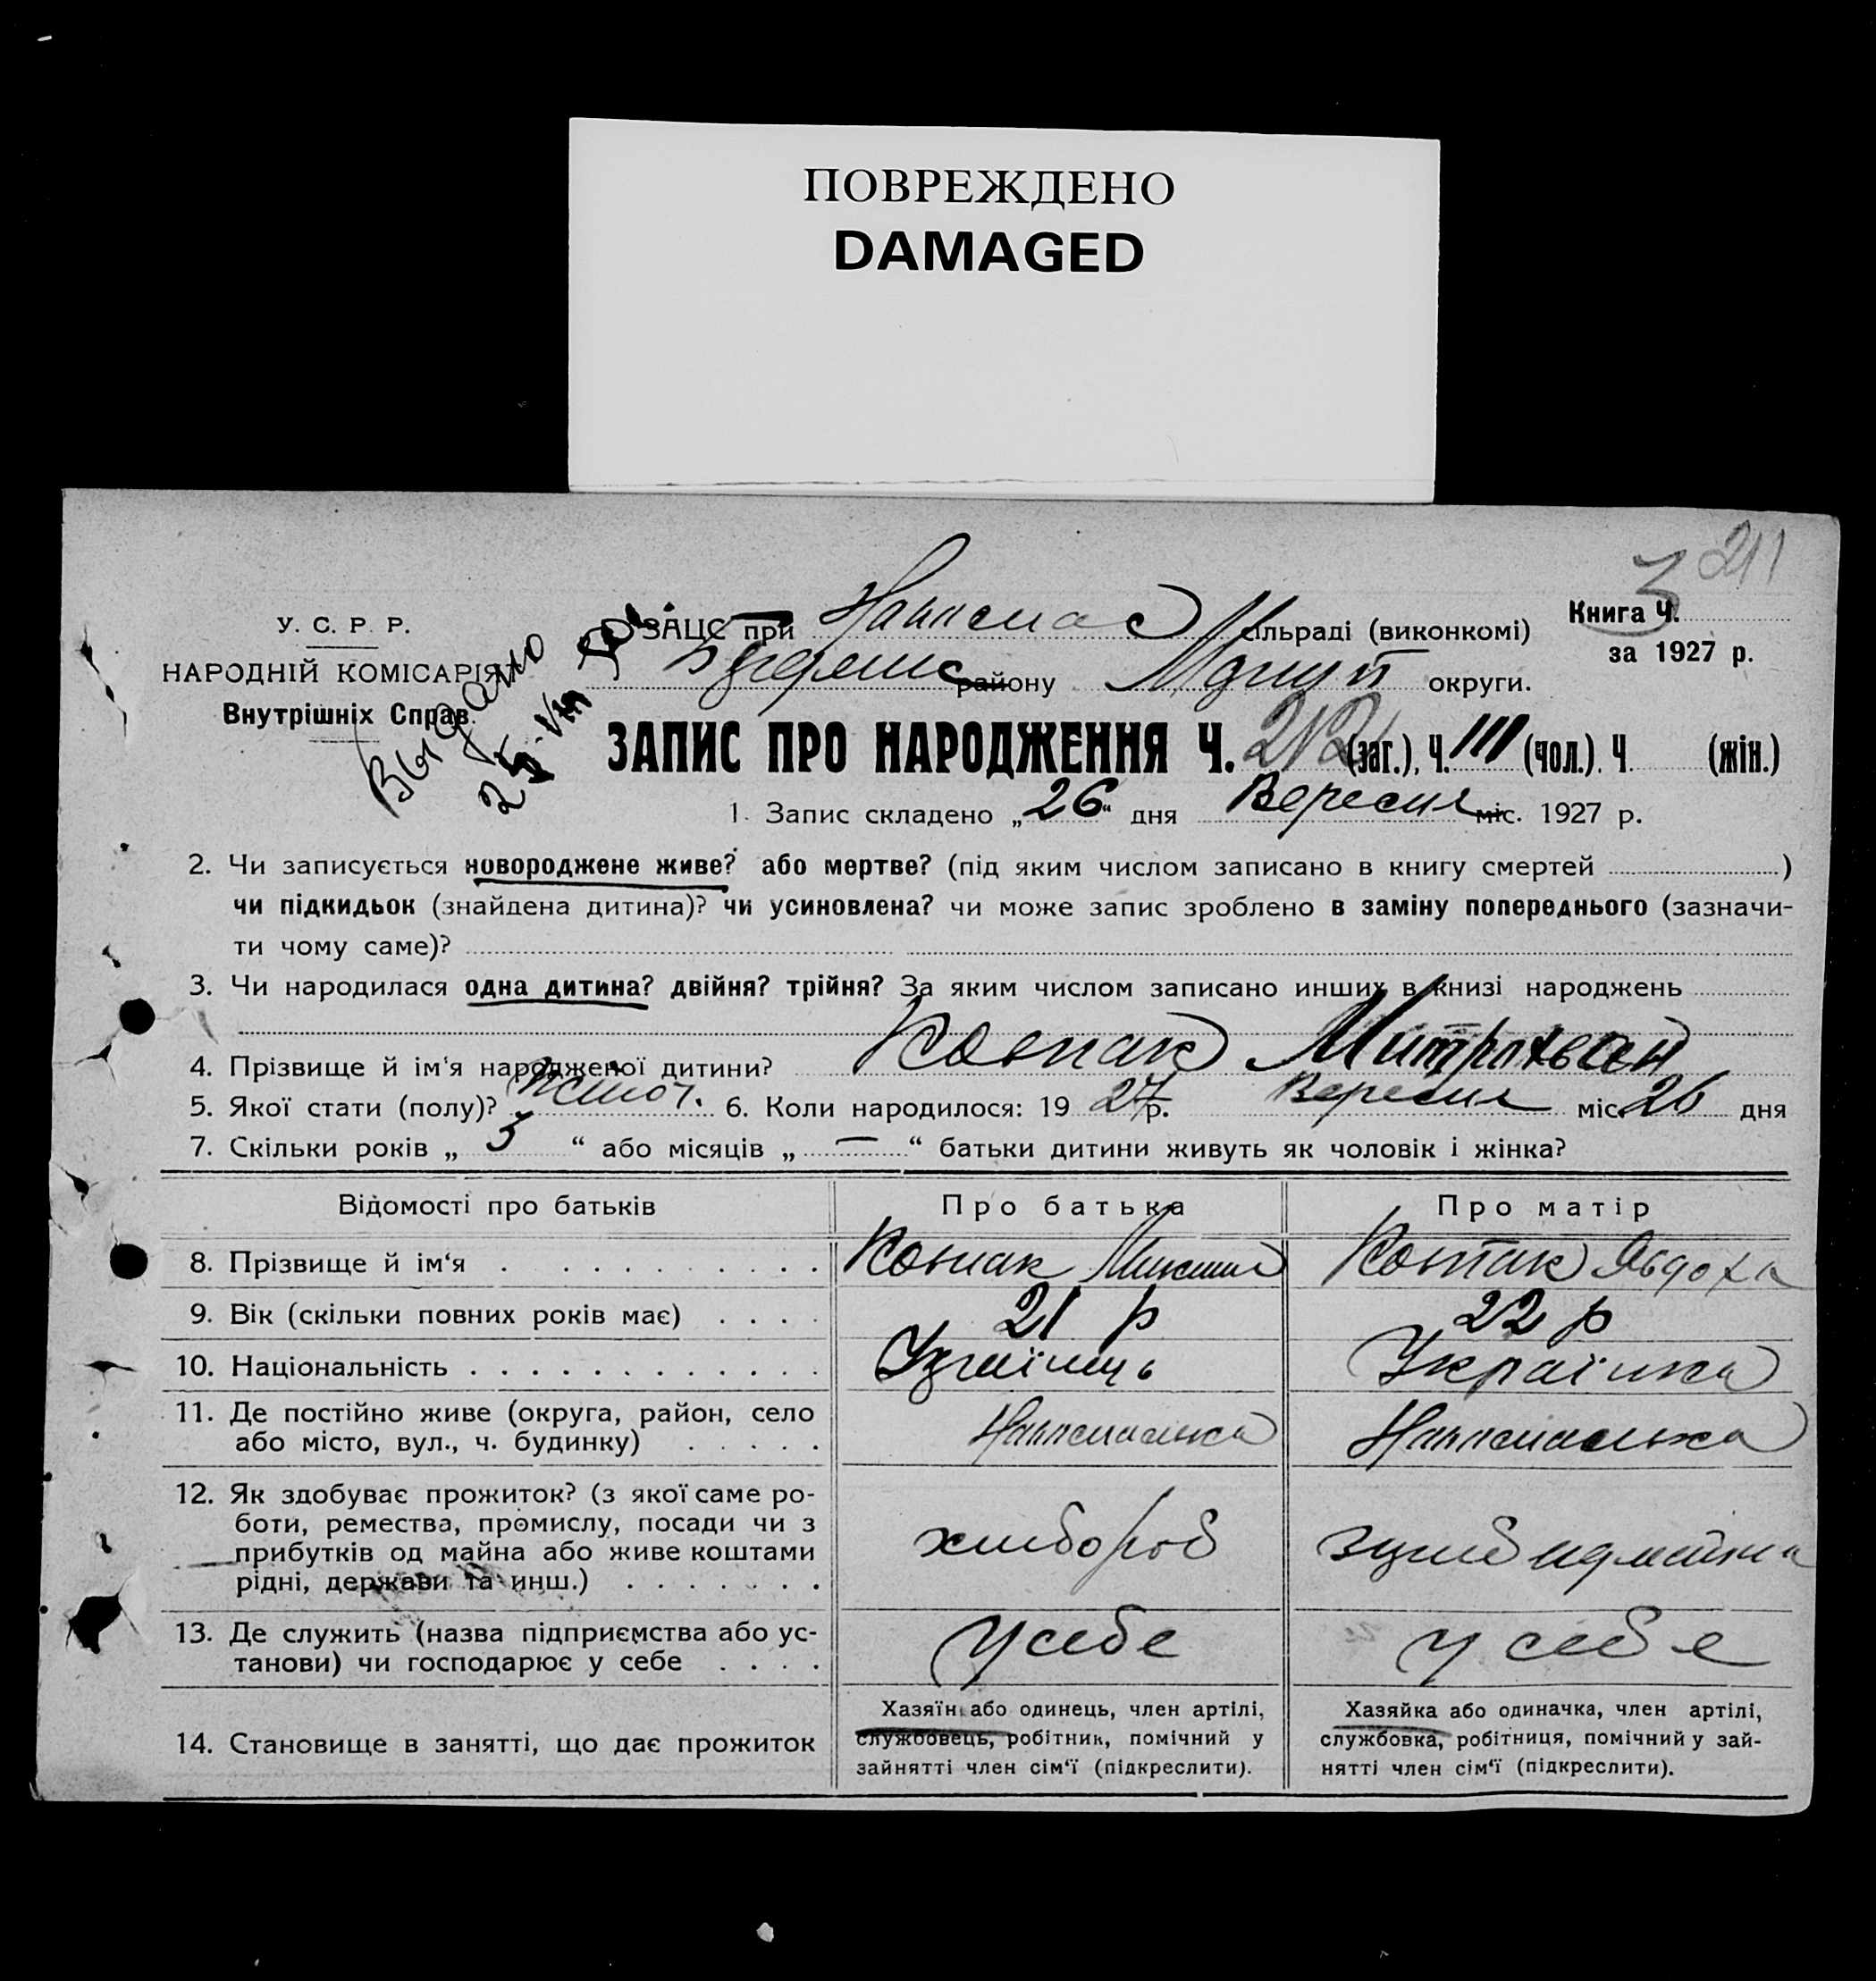 ПОВРЕЖДЕНО
DAMAGED
211
3
У. С. Р. Р.
НАРОДНІЙ КОМІСАРІЯТ
Внутрішніх Справ.
Выдано
ЗАЦС при сільраді (виконкомі)
району округи.
Книга Ч.
за 1927 р.
ЗАПИС ПРО НАРОДЖЕННЯ Ч. 212 (заг.), Ч. 111 (чол.). Ч. (жін.)
1. Запис складено „26“ дня Вересня міс. 1927 р.
2. Чи записується новороджене живе? або мертве? (під яким числом записано в книгу смертей )
чи підкидьок (знайдена дитина)? чи усиновлена? чи може запис зроблено в заміну попереднього (зазначи-
ти чому саме)?
3. Чи народилася одна дитина? двійня? трійня? За яким числом записано инших в книзі народжень
4. Прізвище й ім'я народженої дитини? Митрохван
5. Якої стати (полу)? 6. Коли народилося: 19 27 р. Вересня міс. 26 дня
7. Скільки років „ 3 “ або місяців „ — “ батьки дитини живуть як чоловік і жінка?
Відомості про батьків Про батька Про матір
8. Прізвище й ім'я Явдоха
9. Вік (скільки повних років має) 21 р 22 р
10. Національність Українець Українка
11. Де постійно живе (округа, район, село
або місто, вул., ч. будинку)
12. Як здобуває прожиток? (з якої саме ро-
боти, ремества, промислу, посади чи з
прибутків од майна або живе коштами
рідні, держави та инш.) хлібороб
13. Де служить (назва підприємства або ус-
танови) чи господарює у себе у себе у себе
14. Становище в занятті, що дає прожиток
Хазяїн або одинець, член артілі,
службовець, робітник, помічний у
зайнятті член сім'ї (підкреслити).
Хазяйка або одиначка, член артілі,
службовка, робітниця, помічний у зай-
нятті член сім'ї (підкреслити).